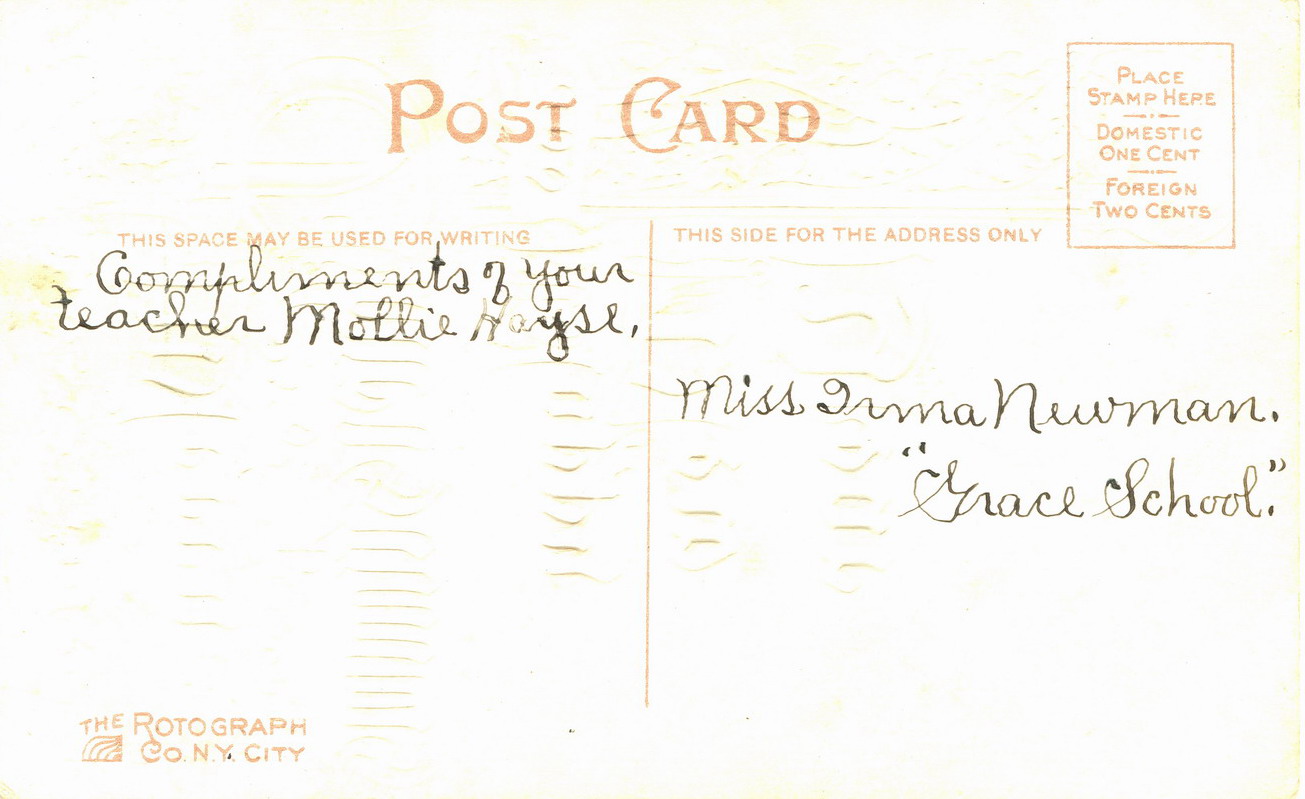 POST CARD
PLACE
STAMP HERE
DOMESTIC
ONE CENT
FOREIGN
TWO CENTS
THIS SPACE MAY BE USED FOR WRITING
Compliments of your
teacher Mollie Hayse,
THIS SIDE FOR THE ADDRESS ONLY
Miss Irma Newman.
"Grace School."
THE ROTOGRAPH
CO. N.Y. CITY